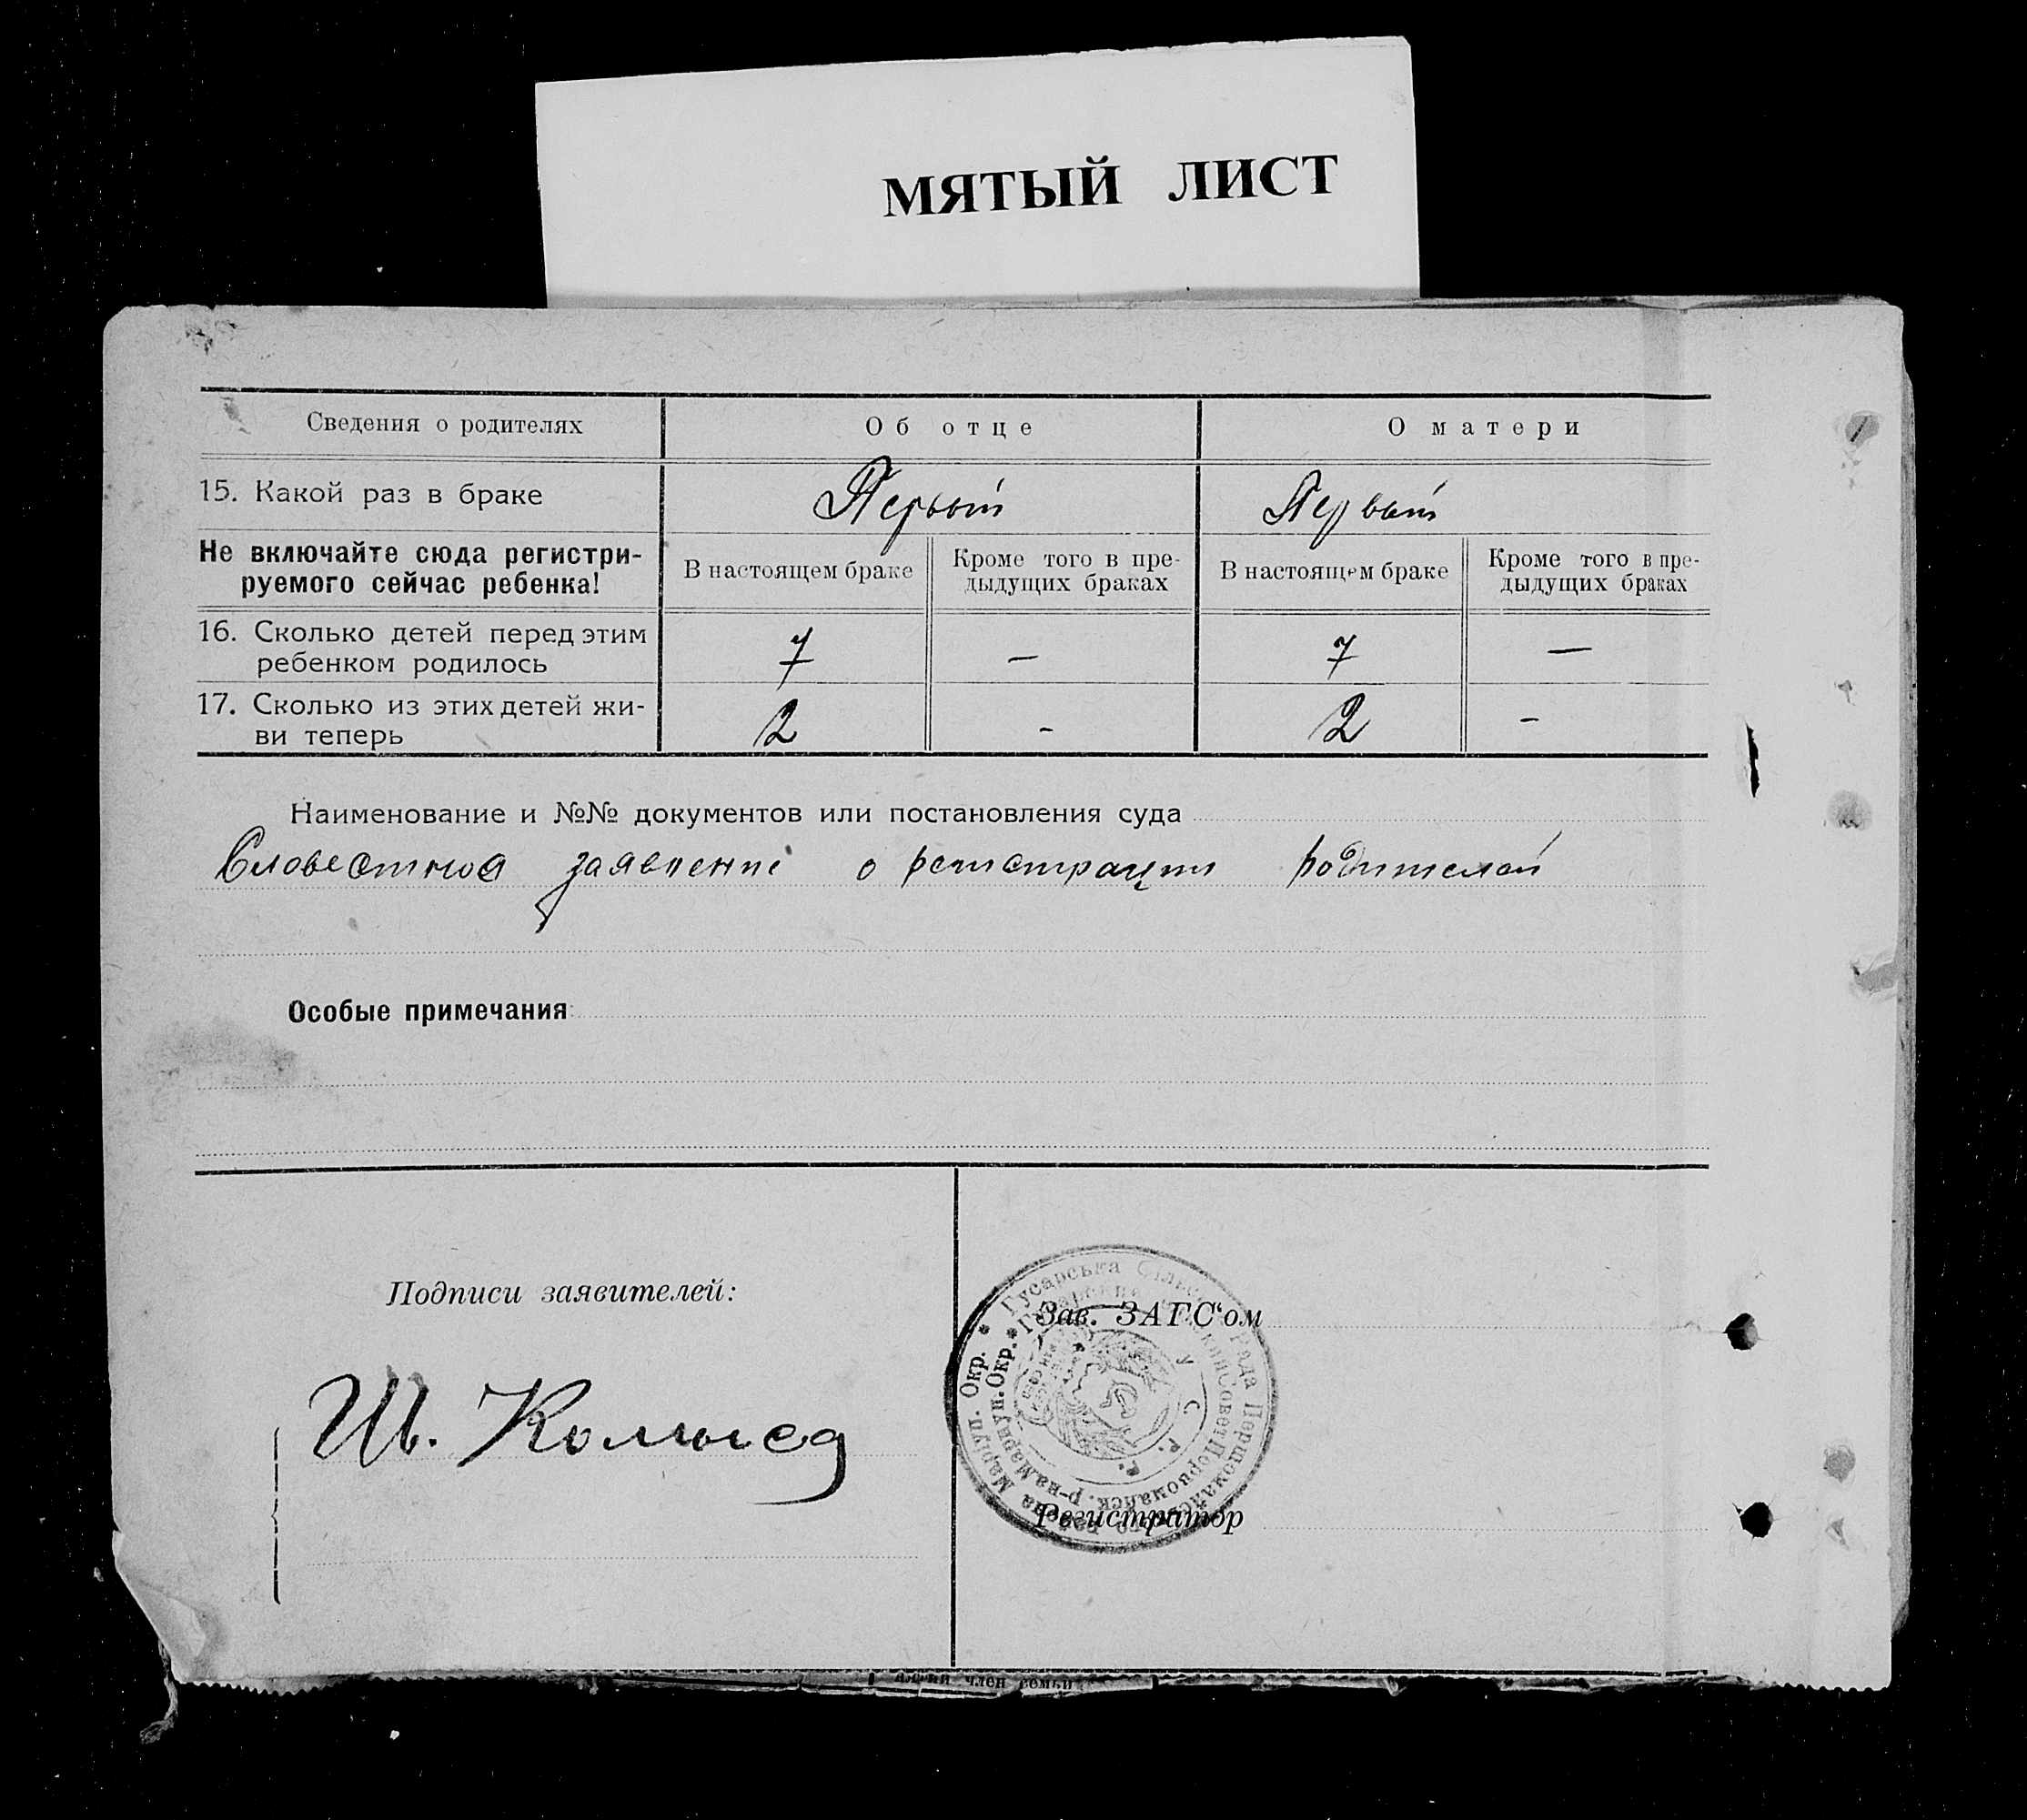 МЯТЫЙ ЛИСТ
Сведения о родителях
Об отце
О матери
15. Какой раз в браке
Первый
Первый
Не включайте сюда регистри-
руемого сейчас ребенка!
В настоящем браке
Кроме того в пре-
дыдущих браках
В настоящем браке
Кроме того в пре-
дыдущих браках
16. Сколько детей перед этим
ребенком родилось
7
—
7
—
17. Сколько из этих детей жи-
ви теперь
2
-
2
-
Наименование и №№ документов или постановления суда
Словестноя заявлениі о регистрации родителей
Особые примечания:
Подписи заявителей:
Ш.
Гусарська Рада
Марiуп. Окр.
У. С. Р. Р.
Зав. ЗАГС‘ом
Регистратор
член семьи